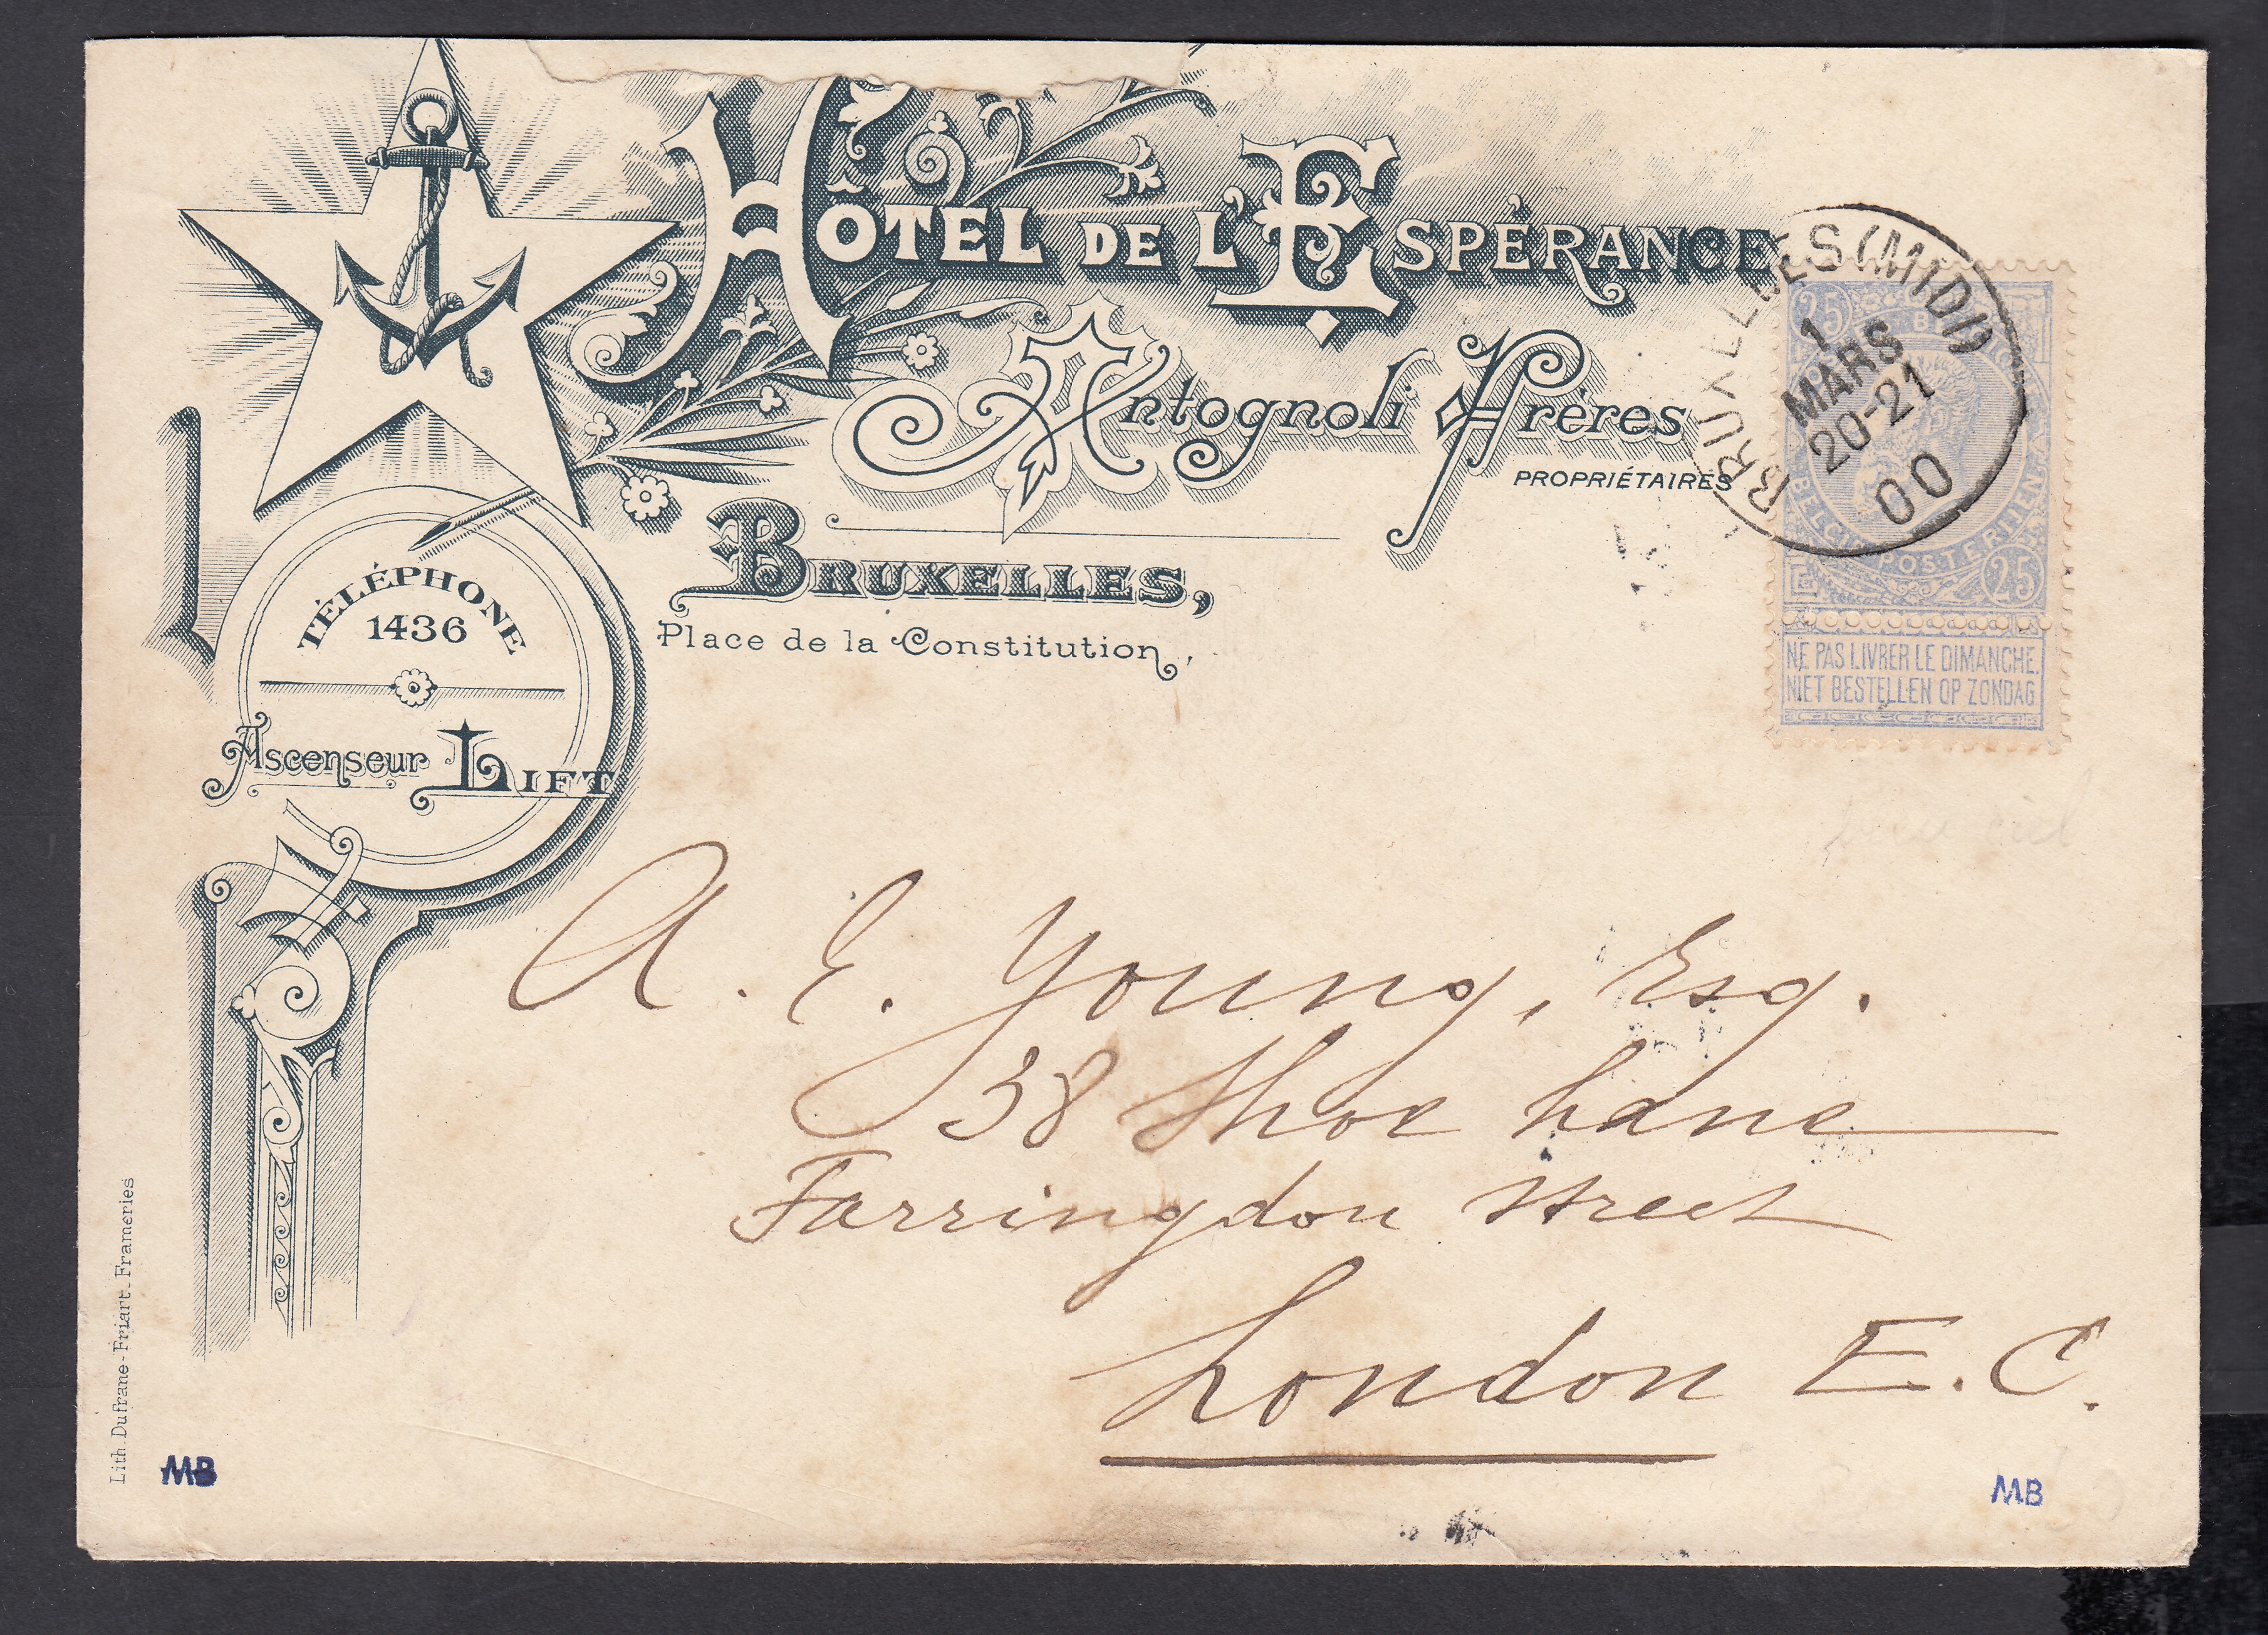 HÔTEL DE L'ESPÉRANCE
Antognoli Frères
PROPRIÉTAIRES
BRUXELLES,
Place de la Constitution,
TÉLÉPHONE
1436
Ascenseur LIFT
BRUXELLES (MIDI)
1
MARS
20-21
00
25
BELGIE POSTERIJEN
25
NE PAS LIVRER LE DIMANCHE.
NIET BESTELLEN OP ZONDAG
A. E. Young, Esq.
38 Shoe Lane
Farringdon Street
London E. C.
Lith. Dufrane-Friart. Frameries
MB
MB